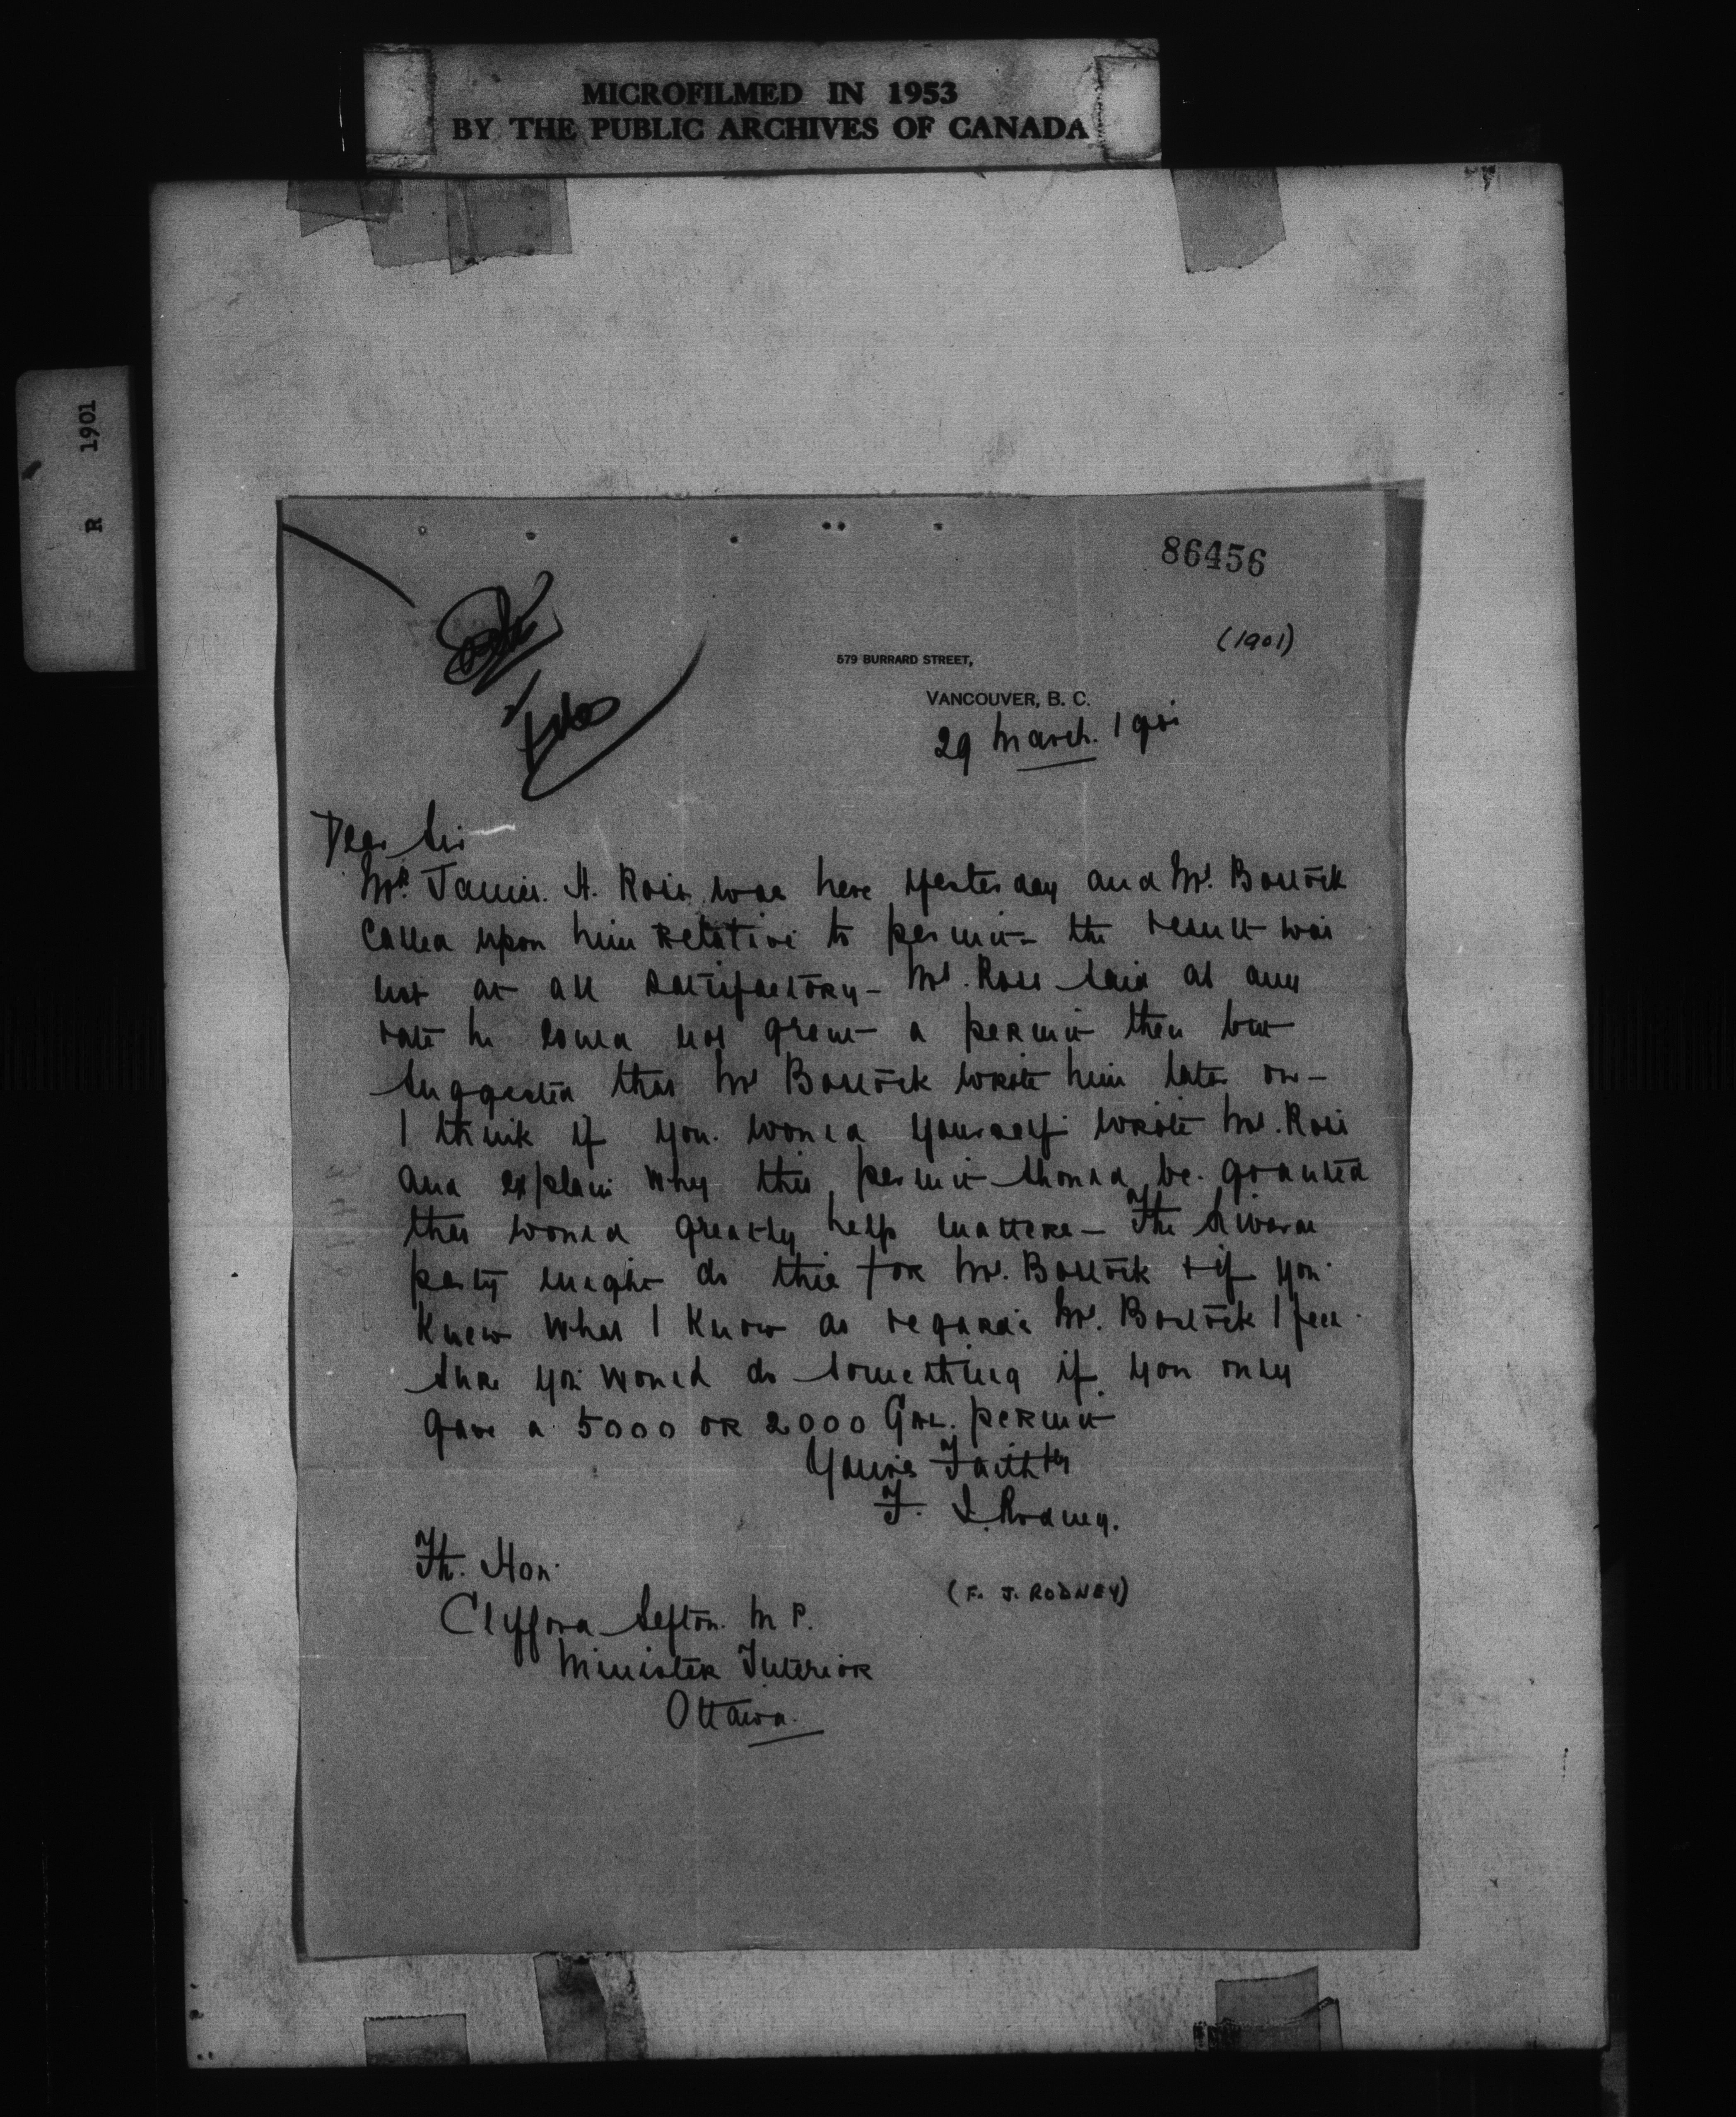 MICROFILMED IN 1953
BY THE PUBLIC ARCHIVES OF CANADA
R 1901
86456
(1901)
579 BURRARD STREET,
VANCOUVER, B. C.
29 March. 1901
Dear Sir
Mr. James. H. Ross was here yesterday and Mr. Bostock
called upon him relative to permit - the result was
not at all satisfactory - Mr. Ross said at any
rate he could not grant a permit then but
suggested that Mr Bostock wrote him later on -
I think if you would yourself write Mr. Ross
and explain why this permit should be granted
that would greatly help matters - The
party might do this for Mr. Bostock & if you
knew what I know as regards Mr. Bostock I feel
sure you would do something if you only
gave a 5000 or 2000 Gal. permit
Yours Faithly
F. J. Rodney.
(F. J. RODNEY)
Th. Hon.
Clifford Sifton. M P.
Minister Interior
Ottawa.